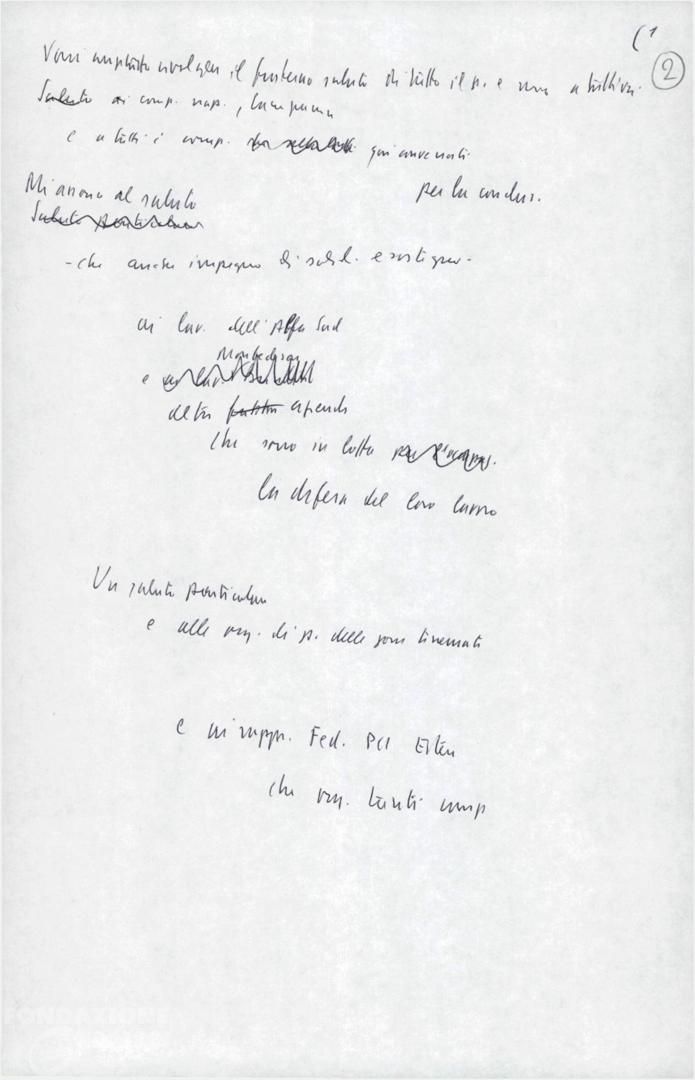 (1
2
Vorrei rivolgere il fraterno saluto di tutto il p. e mio a tutti voi.
Saluto ai comp. nap., Campania
e a tutti i comp. qui convenuti
per la conclus.
Mi associo al saluto
Saluto particolare
- che anche impegno di solid. e sostegno -
ai lav. dell'Alfa Sud
Montedison
e
altre aziende
che sono in lotta
la difesa del loro lavoro
Un saluto particolare
e alle org. di p. delle zone terremotate
e ai rappr. Fed. PCI Estero
che org. tanti comp
FONDAZIONE